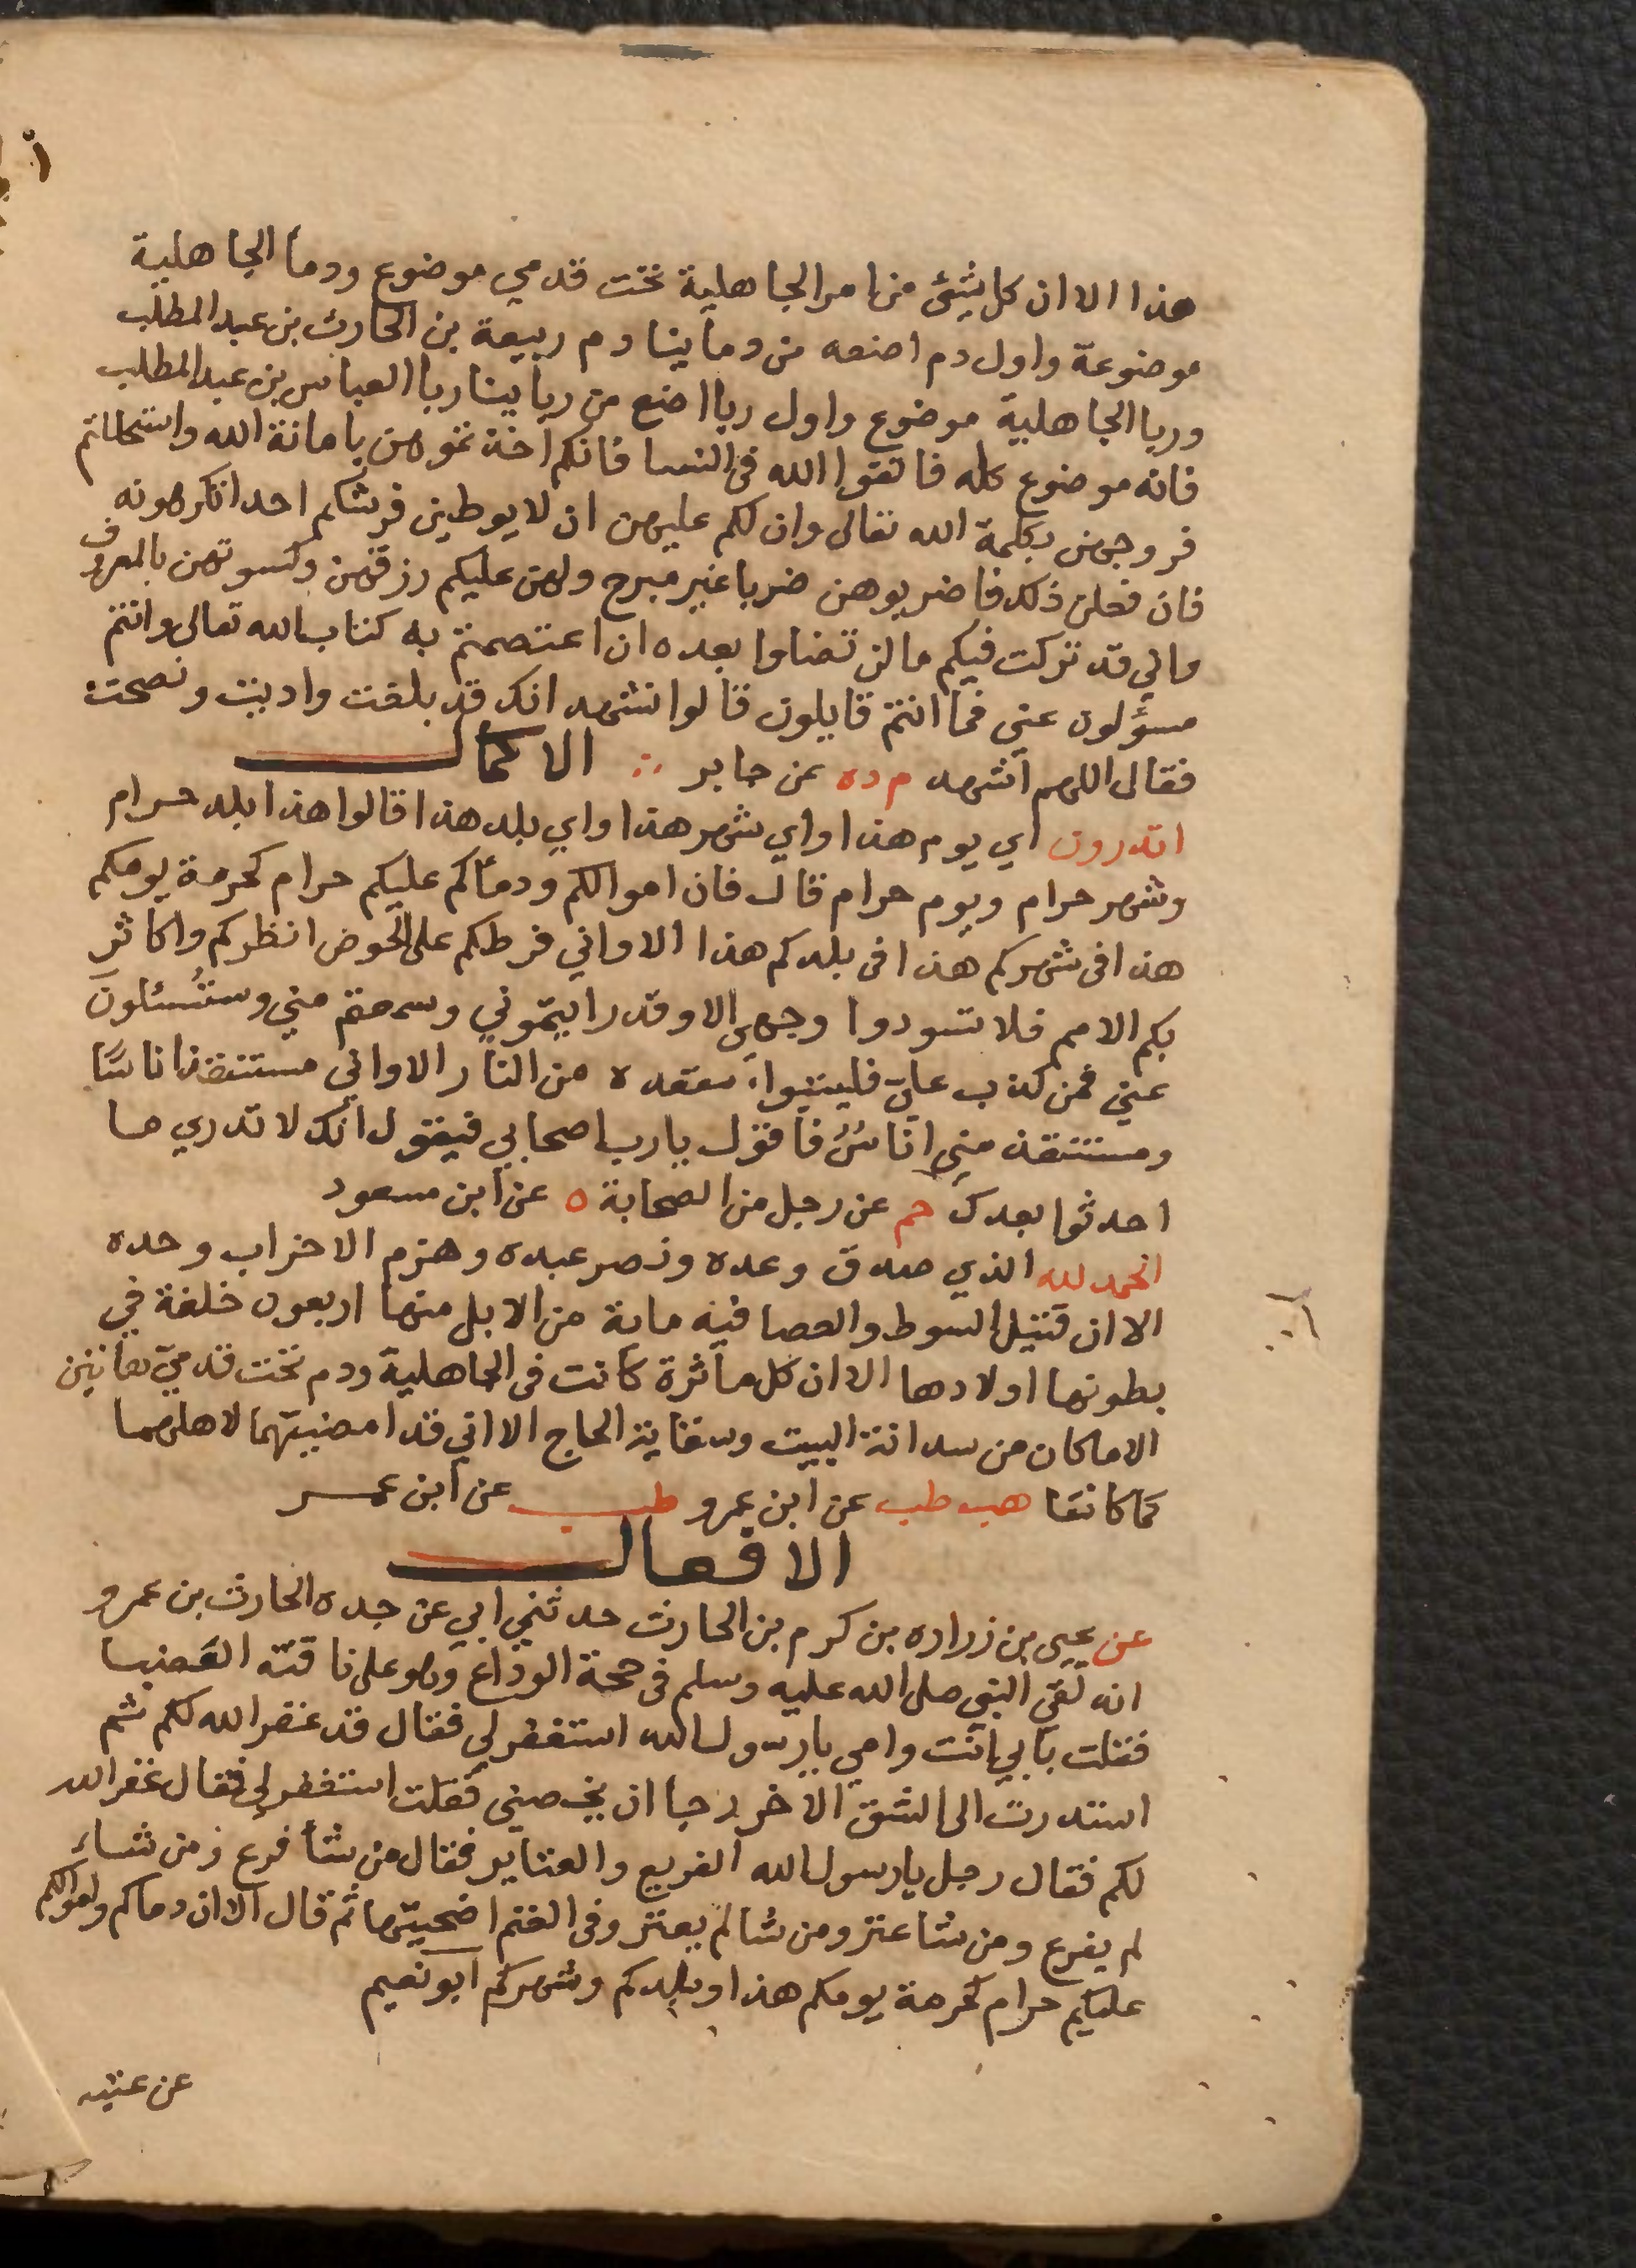 هذا الا ان كل شئ من امر الجاهلية تحت قدمي موضوع ودما الجاهلية
موضوعة واول دم اضعه من دماينا دم ربيعة بن الحارث بن عبد المطلب
وربا الجاهلية موضوع واول ربا اضع من ربابينا ربا العباس بن عبد المطلب
فانه موضوع كله فاتقوا الله فى النسا فانكم اخذتموهن بامانة الله واستحللتم
فروجهن بكلمة الله تعالى وان لكم عليهن ان لا يوطين فرشكم احدا تكرهونه
فان فعلن ذلك فاضربوهن ضربا غير مبرح ولهن عليكم رزقهن وكسوتهن بالمعروف
واني قد تركت فيكم ما لن تضلوا بعده ان اعتصمتم به كتاب الله تعالى وانتم
مسؤلون عني فما انتم قايلون قالوا نشهد انك قد بلغت واديت ونصحت
فقال اللهم اشهد م د ه عن جابر ∴ الاكمال
اتدرون اي يوم هذا واي شهر هذا واي بلد هذا قالوا هذا بلد حرام
وشهر حرام ويوم حرام قال فان اموالكم ودماكم عليكم حرام كحرمة يومكم
هذا فى شهركم هذا فى بلدكم هذا الا واني فرطكم على الحوض انظركم واكاثر
بكم الامم فلا تسودوا وجهى الا وقد رايتموني وسمعتم مني وستُسئلون
عني فمن كذب علىّ فليتبوا مقعده من النار الا واني مستنقذ اناسًا
ومستنقذ مني اناسٌ فاقول يارب اصحابي فيقول انك لا تدري ما
احدثوا بعدك حم عن رجل من الصحابة ه عن ابن مسعود
الحمد لله الذي صدق وعده ونصر عبده وهزم الاحزاب وحده
الا ان قتيل السوط والعصا فيه ماية من الابل منها اربعون خلفة في
بطونها اولادها الا ان كل مأثرة كانت فى الجاهلية ودم تحت قدميّ هاتين
الا ما كان من سدانة البيت وسقاية الحاج الا اني قد امضيتهما لاهلهما
كما كانتا هب طب عن ابن عمرو طب عن ابن عمر
الافعال
عن يحيى بن زراره بن كرم بن الحارث حدثني ابي عن جده الحارث بن عمرو
انه لقى النبي صلى الله عليه وسلم فى حجة الوداع وهو على ناقته العَضبا
فقلت بابي انت وامي يا رسول الله استغفر لي فقال قد غفر الله لكم ثم
استدرت الى الشق الاخر رجا ان يخصني فقلت استغفر لي فقال غفر الله
لكم فقال رجل يا رسول الله الفريع والعتاير فقال من شأ فرع ومن شاء
لم يفرع ومن شا عتر ومن شا لم يعتر وفى الغنم اضحيتها ثم قال الا ان دماكم واموالكم
عليكم حرام كحرمة يومكم هذا وبلدكم وشهركم ابو نعيم
عن عتبه